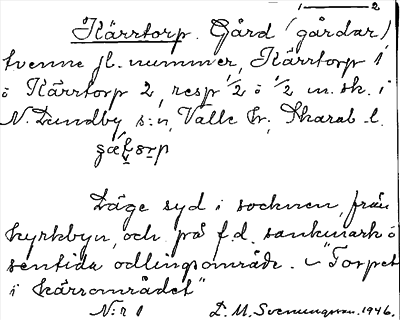 1 — 2
Kärrtorp. Gård (gårdar)
tvenne jl. nummer, Kärrtorp 1
o Kärrtorp 2, resp 1/2 o 1/2 m.sk. i
N. Lundby s:n, Valle hr; Skarab. l.
Läge syd i socknen, från
kyrkbyn, och på f.d. sankmark o
sentida odlingsområde. "Torpet
i kärrområdet"
N:r 1 D. M. Svenungson. 1946.